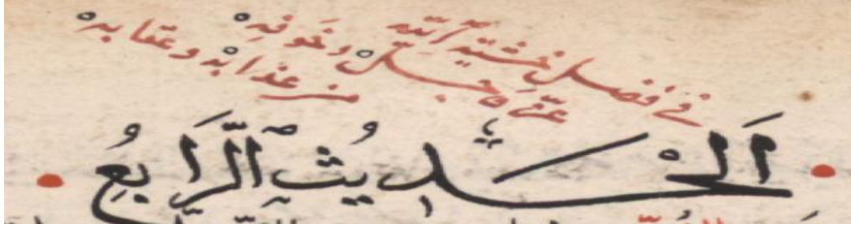 في فضل خشية الله
عز وجل وخوفه
من عذابه وعقابه
اَلْحَدِيثُ الرَّابِعُ